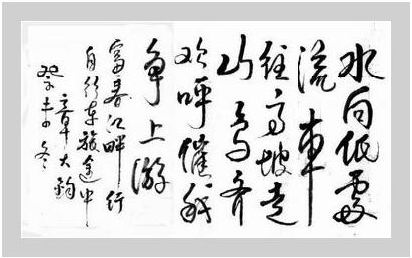 水向低處
流車
往高坡走
山鳥齐
欢呼催我
争上游
富春江畔行
自行车旅途中
章大鈞
癸未冬